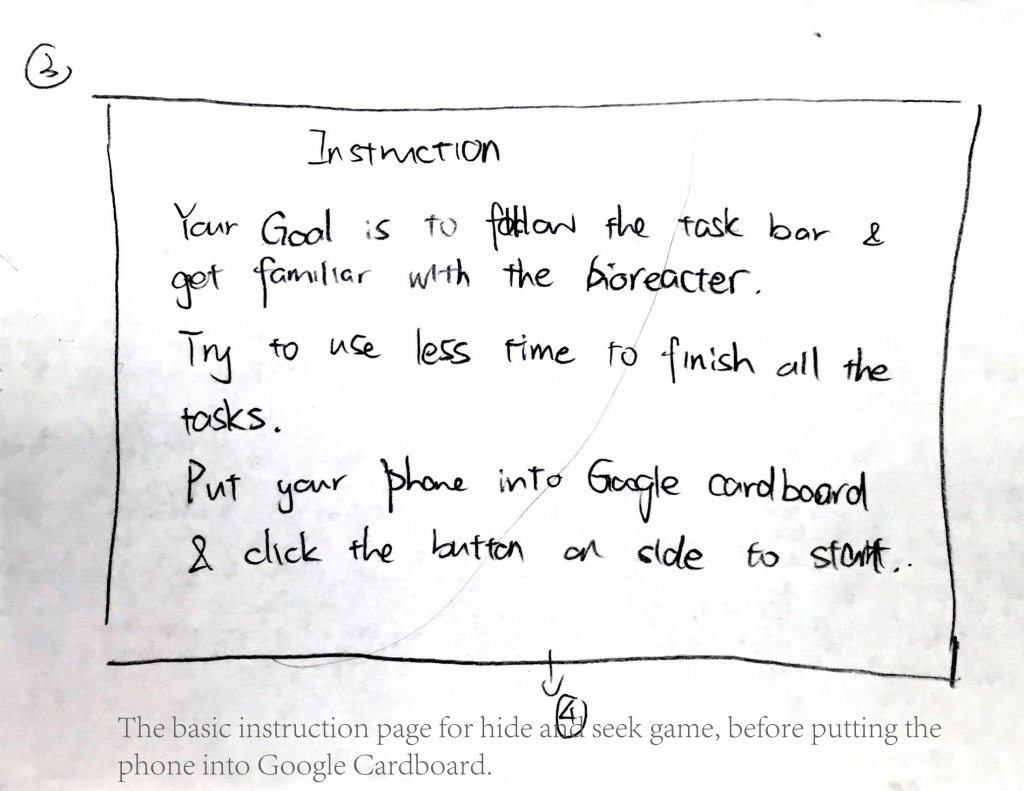 3
Instruction
Your Goal is to follow the task bar &
get familiar with the bioreacter.
Try to use less time to finish all the
tasks.
Put your phone into Google cardboard
& click the button on side to start..
4
The basic instruction page for hide and seek game, before putting the
phone into Google Cardboard.